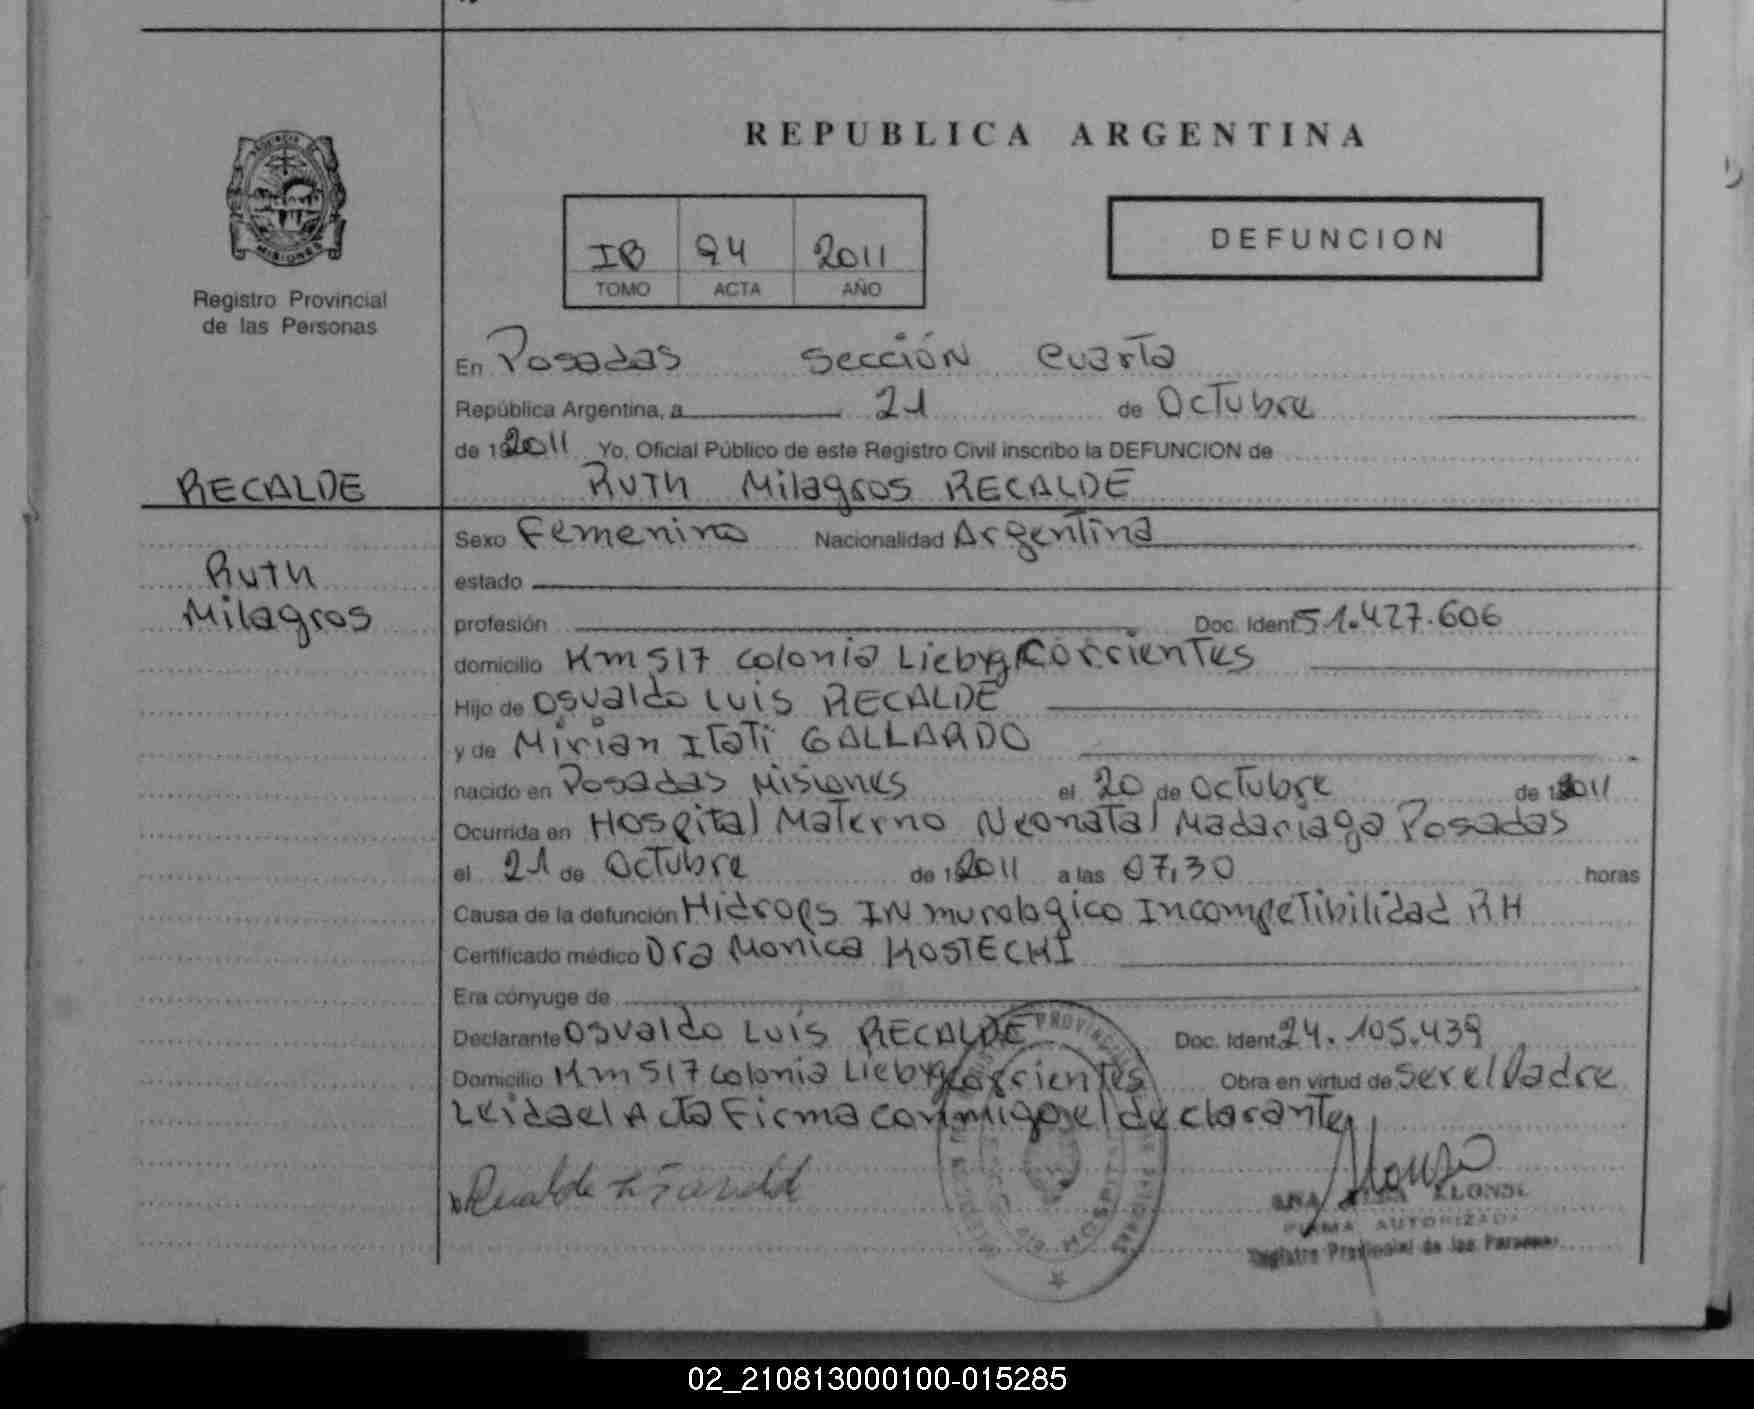 REPUBLICA ARGENTINA
DEFUNCION
IB 94 2011
TOMO ACTA AÑO
MISIONES
Registro Provincial
de las Personas
En Posadas Sección Cuarta
República Argentina, a 21 de Octubre
de 2011 Yo, Oficial Público de este Registro Civil inscribo la DEFUNCION de
RECALDE
Ruth Milagros RECALDE
Ruth
Milagros
Sexo Femenino Nacionalidad Argentina
estado
profesión Doc. Ident 51.427.606
domicilio Km 517 Colonia Liebyg Corrientes
Hijo de Osvaldo Luis RECALDE
y de Mirian Itati GALLARDO
nacido en Posadas Misiones el 20 de Octubre de 2011
Ocurrida en Hospital Materno Neonatal Madariaga Posadas
el 21 de Octubre de 2011 a las 07,30 horas
Causa de la defunción Hidrops INmurologico Incompetibilidad RH
Certificado médico Dra Monica KOSTECKI
Era cónyuge de
Declarante Osvaldo Luis RECALDE Doc. Ident 24.105.439
Domicilio Km 517 colonia Liebyg Corrientes Obra en virtud de ser el Padre
Leida el Acta Firma conmigo el declarante
Recalde
Alonso
ANA ALONSO
FIRMA AUTORIZADA
Registro Provincial de las Personas
02_210813000100-015285